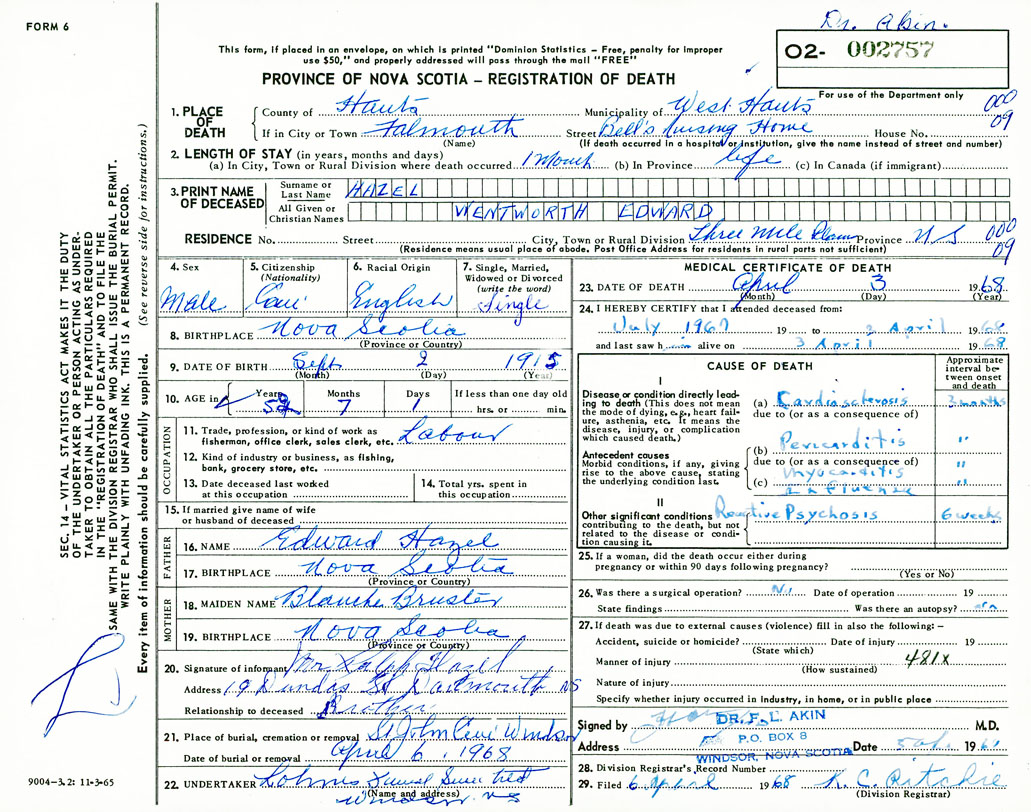 Dr. Akin.
FORM 6
O2- 002757
This form, if placed in an envelope, on which is printed "Dominion Statistics – Free, penalty for improper
use $50," and properly addressed will pass through the mail "FREE"
PROVINCE OF NOVA SCOTIA – REGISTRATION OF DEATH
For use of the Department only
1. PLACE OF DEATH
County of Hants Municipality of West Hants 000 09
If in City or Town Falmouth Street Bell's Nursing Home House No.
(Name) (If death occurred in a hospital or institution, give the name instead of street and number)
2. LENGTH OF STAY (in years, months and days)
(a) In City, Town or Rural Division where death occurred 1 Month (b) In Province life (c) In Canada (if immigrant)
3. PRINT NAME OF DECEASED
Surname or Last Name HAZEL
All Given or Christian Names WENTWORTH EDWARD
RESIDENCE No. Street City, Town or Rural Division Three Mile Plains Province N S 000 09
(Residence means usual place of abode. Post Office Address for residents in rural parts not sufficient)
4. Sex Male
5. Citizenship (Nationality)
6. Racial Origin English
7. Single, Married, Widowed or Divorced (write the word) Single
8. BIRTHPLACE Nova Scotia
(Province or Country)
9. DATE OF BIRTH Sept 2 1915
(Month) (Day) (Year)
10. AGE in Years Months 7 Days 1 If less than one day old
hrs. or min.
OCCUPATION
11. Trade, profession, or kind of work as Labour
fisherman, office clerk, sales clerk, etc.
12. Kind of industry or business, as fishing,
bank, grocery store, etc.
13. Date deceased last worked
at this occupation
14. Total yrs. spent in
this occupation
15. If married give name of wife
or husband of deceased
FATHER
16. NAME Edward Hazel
17. BIRTHPLACE Nova Scotia
(Province or Country)
MOTHER
18. MAIDEN NAME Blanche Bruster
19. BIRTHPLACE Nova Scotia
(Province or Country)
20. Signature of informant Mr Ralph Hazel
Address 19 Dundas St Dartmouth NS
Relationship to deceased Brother
21. Place of burial, cremation or removal St John Windsor
Date of burial or removal April 6, 1968
22. UNDERTAKER Funeral
(Name and address)
Windsor NS
9004-3.2: 11-3-65
MEDICAL CERTIFICATE OF DEATH
23. DATE OF DEATH April 3 1968
(Month) (Day) (Year)
24. I HEREBY CERTIFY that I attended deceased from:
July 1967 19 to April 1968
and last saw h alive on 3 April 1968
CAUSE OF DEATH
Approximate interval between onset and death
I
Disease or condition directly leading to death (This does not mean the mode of dying, e.g., heart failure, asthenia, etc. It means the disease, injury, or complication which caused death.)
(a) Cardiosclerosis 3 months
due to (or as a consequence of)
Antecedent causes
Morbid conditions, if any, giving rise to the above cause, stating the underlying condition last.
(b) Pericarditis "
due to (or as a consequence of)
Myocarditis "
(c) Influenza "
II
Other significant conditions contributing to the death, but not related to the disease or condition causing it.
Reactive Psychosis 6 weeks
25. If a woman, did the death occur either during
pregnancy or within 90 days following pregnancy?
(Yes or No)
26. Was there a surgical operation? Date of operation 19
State findings Was there an autopsy?
27. If death was due to external causes (violence) fill in also the following: –
Accident, suicide or homicide? Date of injury 19
(State which)
Manner of injury 481x
(How sustained)
Nature of injury
Specify whether injury occurred in industry, in home, or in public place
Signed by DR. F. L. AKIN M.D.
Address P.O. BOX 8
WINDSOR, NOVA SCOTIA Date 19
28. Division Registrar's Record Number
29. Filed 6 April 1968 K. C. Ritchie
(Division Registrar)
SEC. 14 – VITAL STATISTICS ACT MAKES IT THE DUTY
OF THE UNDERTAKER OR PERSON ACTING AS UNDER-
TAKER TO OBTAIN ALL THE PARTICULARS REQUIRED
IN THE "REGISTRATION OF DEATH" AND TO FILE THE
SAME WITH THE DIVISION REGISTRAR WHO SHALL ISSUE THE BURIAL PERMIT.
WRITE PLAINLY WITH UNFADING INK. THIS IS A PERMANENT RECORD.
Every item of information should be carefully supplied. (See reverse side for instructions.)